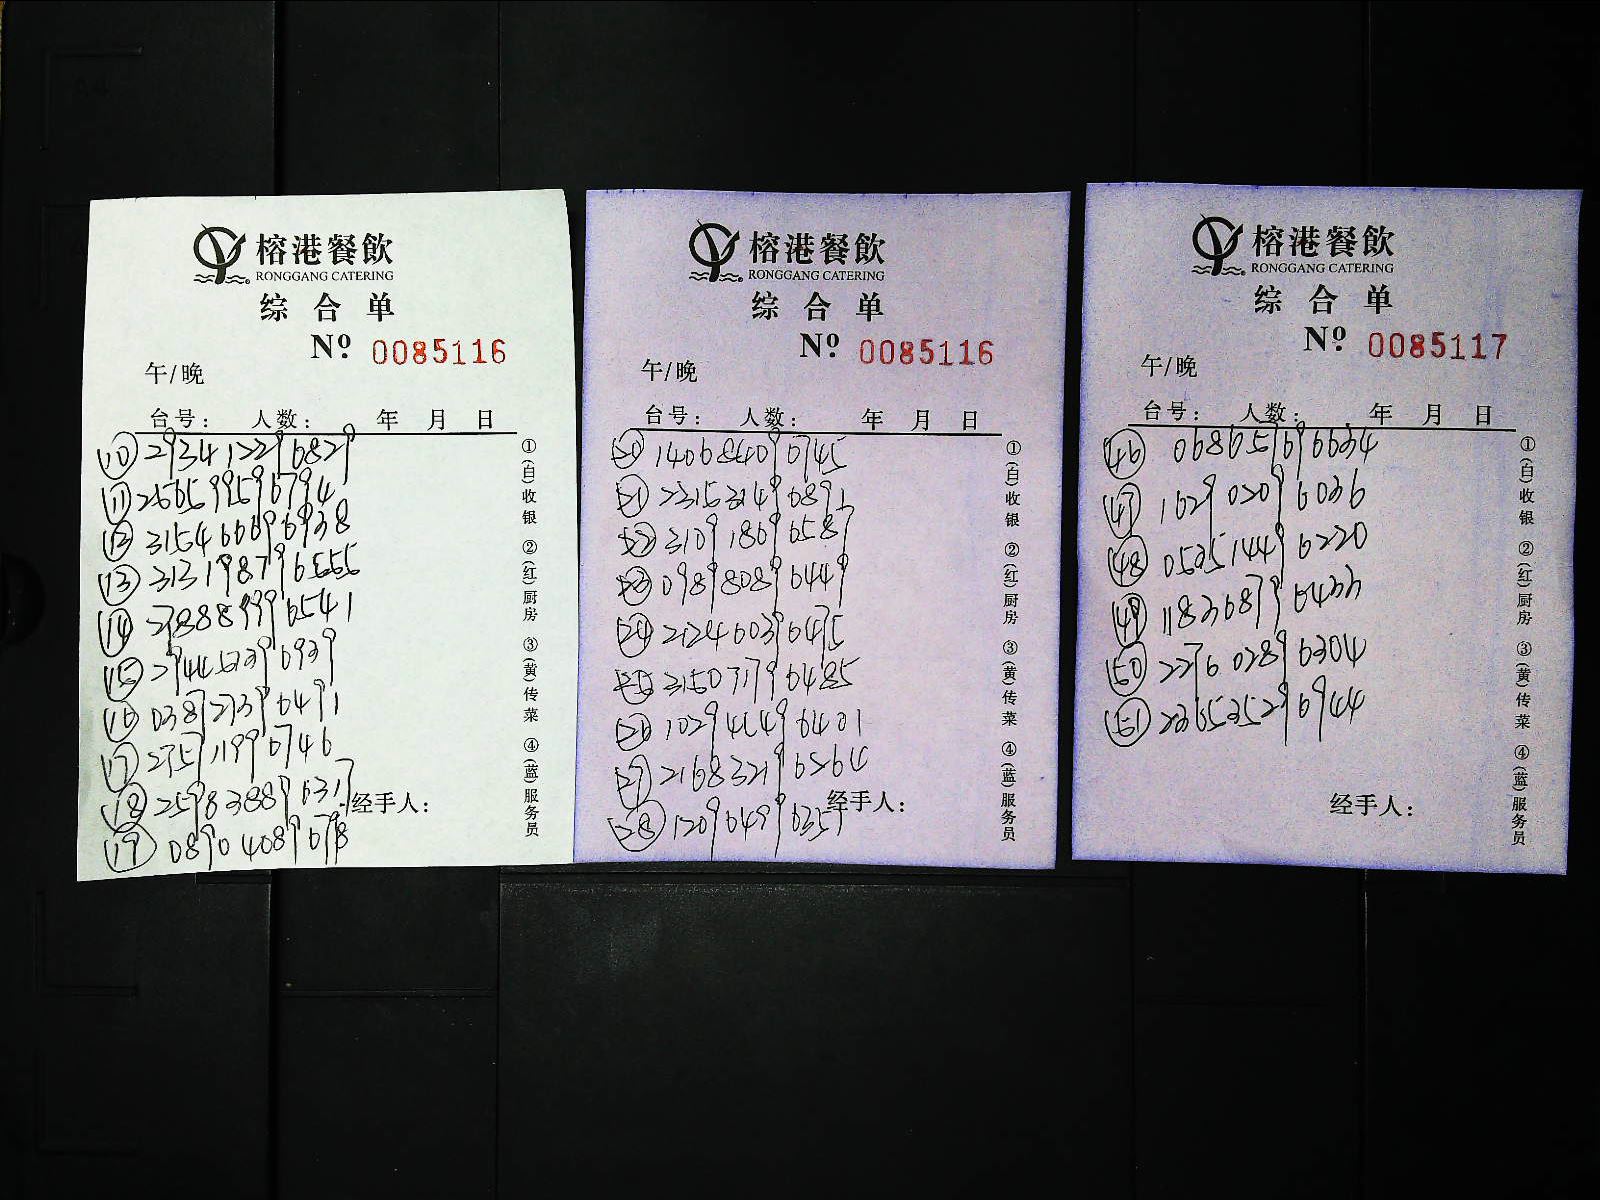 榕港餐飲
RONGGANG CATERING
综合单
Nº 0085116
午/晚
台号： 人数： 年 月 日
⑩ 293412296829
⑪ 2565999596794
⑫ 315466696938
⑬ 313198796555
⑭ 2988899996541
⑮ 294452396939
⑯ 038927396491
⑰ 275711996746
⑱ 259838896317
⑲ 089040896798
①(白)收银 ②(红)厨房 ③(黄)传菜 ④(蓝)服务员
经手人：
榕港餐飲
RONGGANG CATERING
综合单
Nº 0085116
午/晚
台号： 人数： 年 月 日
140684096745
231531496891
310918696587
098980896449
212460396475
315077196485
102944496401
㉗ 216832196264
㉘ 120964996357
①(白)收银 ②(红)厨房 ③(黄)传菜 ④(蓝)服务员
经手人：
榕港餐飲
RONGGANG CATERING
综合单
Nº 0085117
午/晚
台号： 人数： 年 月 日
㊻ 068651696634
㊼ 162902096036
㊽ 052514496220
㊾ 118368796433
㊿ 227602896304
(51) 236535296944
①(白)收银 ②(红)厨房 ③(黄)传菜 ④(蓝)服务员
经手人：